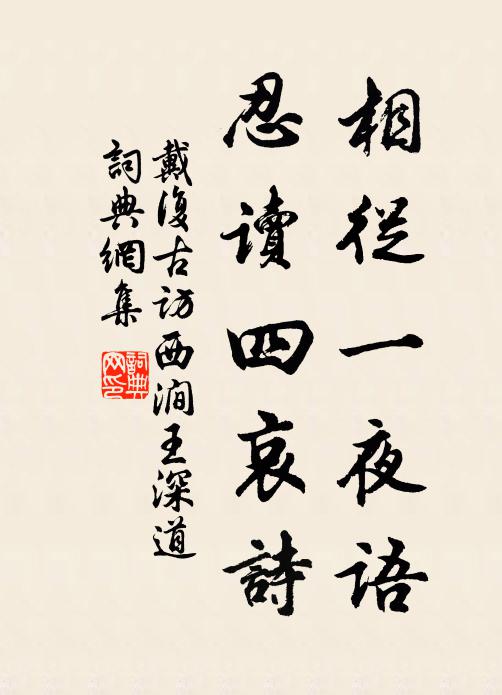 相從一夜語
忍讀四哀詩
戴復古訪西澗王深道
詞典網集
詞典網印